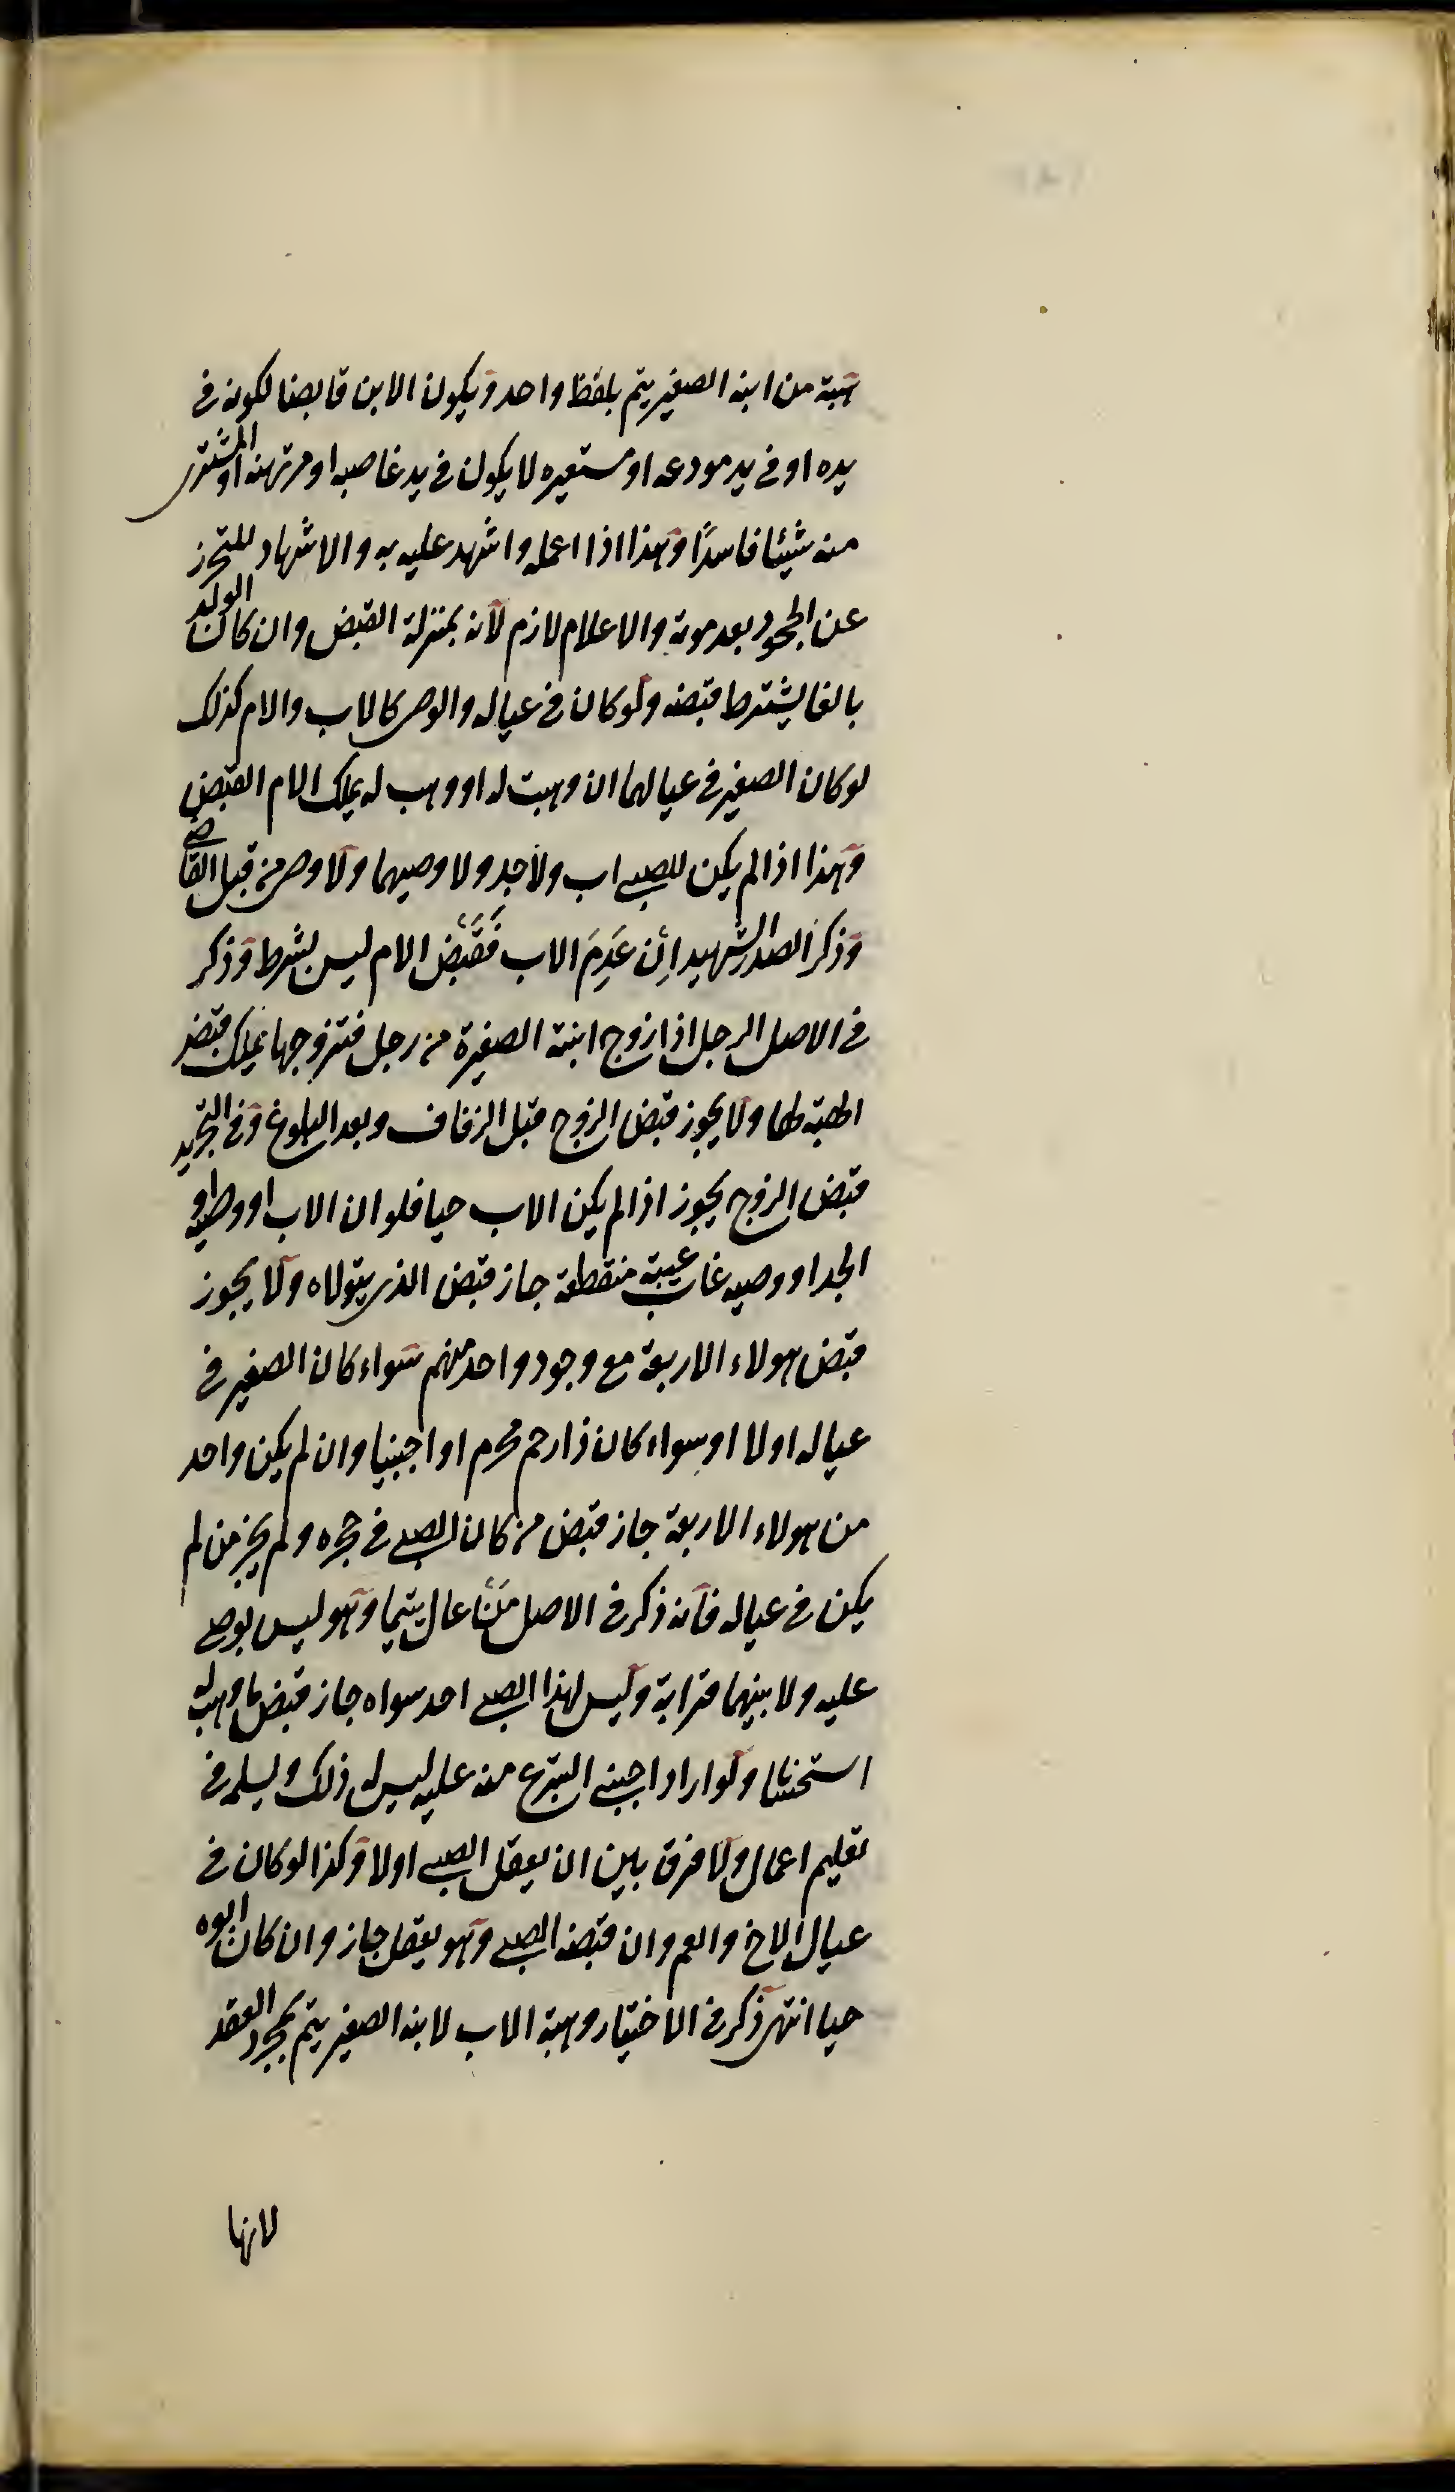 هبة من ابنه الصغير يتم بلفظ واحد ويكون الابن قابضا لكونه فى
يده او فى يد مودعه او مستعيره لا يكون فى يد غاصبه او مرتهنه او المشترى
منه شيئا فاسدًا وهذا اذا اعمله واشهد عليه به والاشهاد للتحرز
عن الجحود بعد موته والاعلام لازم لانه بمنزلة القبض وان كان الولد
بالغا يشترط قبضه ولو كان فى عياله والوصى كالاب والام كذلك
لو كان الصغير فى عيالهما ان وهبت له او وهب له يملك الام القبض
وهذا اذا لم يكن للصبى اب ولا جد ولا وصيهما ولا وصى من قبل القاضى
وذكر الصدر الشهيد ان عَدِمَ الاب فَقَبْض الام ليس بشرط وذكر
فى الاصل الرجل اذا زوج ابنته الصغيرة من رجل فتزوجها يملك قبض
الهبة لها ولا يجوز قبض الزوج قبل الزفاف وبعد البلوغ وفى التجريد
قبض الزوج يجوز اذا لم يكن الاب حيا فلو ان الاب او وصيه او
الجد او وصيه غاب غيبة منقطعة جاز قبض الذى يتولاه ولا يجوز
قبض هولاء الاربعة مع وجود واحد منهم سواء كان الصغير فى
عياله اولا او سواء كان ذا رحم محرم او اجنبيا وان لم يكن واحد
من هولاء الاربعة جاز قبض من كان الصبى فى حجره ولم يجز من لم
يكن فى عياله فانه ذكر فى الاصل مَنْ عال يتيما وهو ليس بوصى
عليه ولا بينهما قرابة وليس لهذا الصبى احد سواه جاز قبض ما وهب له
استحسانا ولو اراد اجنبى التبرع منه عليه ليس له ذلك ويسلمه فى
تعليم اعمال ولا فرق بين ان يعقل الصبى اولا وكذا لو كان فى
عيال الاخ والعم وان قبضه الصبى وهو يعقل جاز وان كان ابوه
حيا انتهى ذكر فى الاختيار وهبة الاب لابنه الصغير يتم بمجرد العقد
لانها